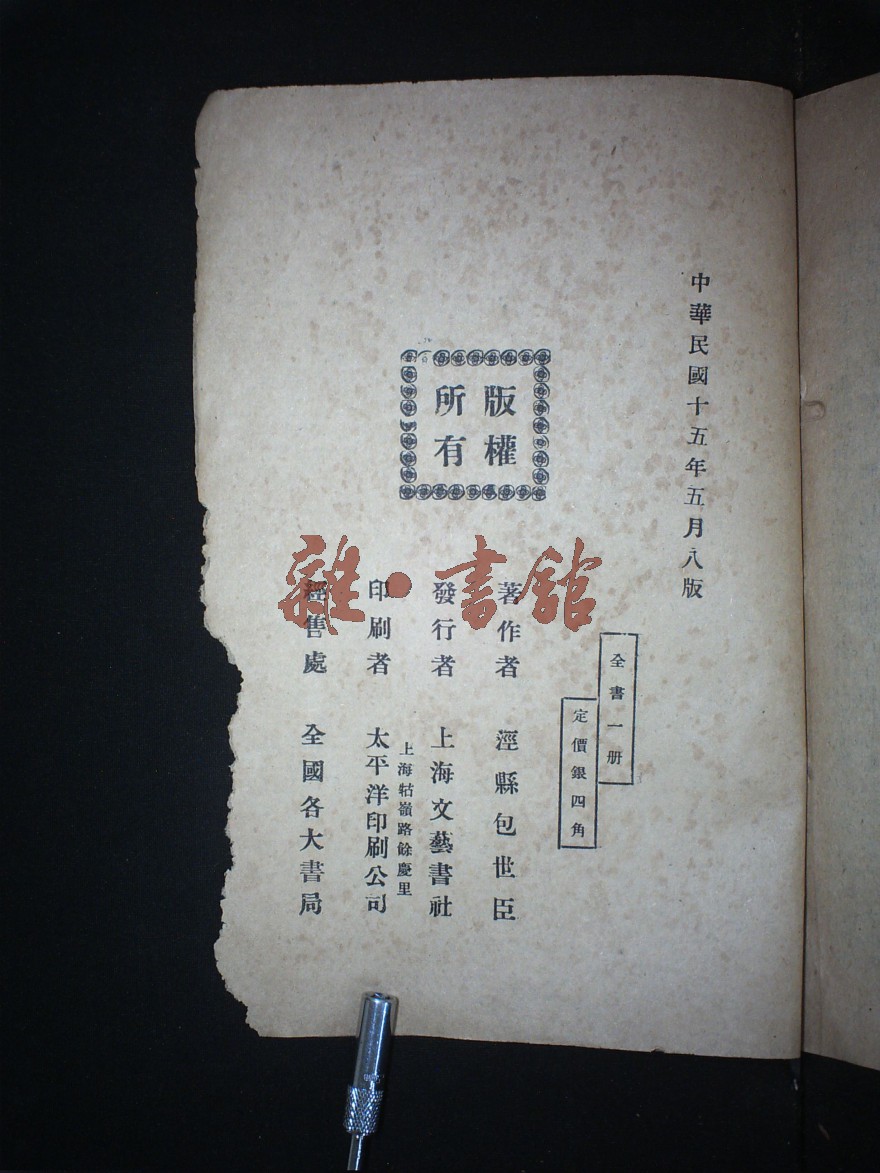 中華民國十五年五月八版
全書一册
定價銀四角
版權
所有
著作者 涇縣包世臣
發行者 上海文藝書社
上海牯嶺路餘慶里
印刷者 太平洋印刷公司
經售處 全國各大書局
雜·書館